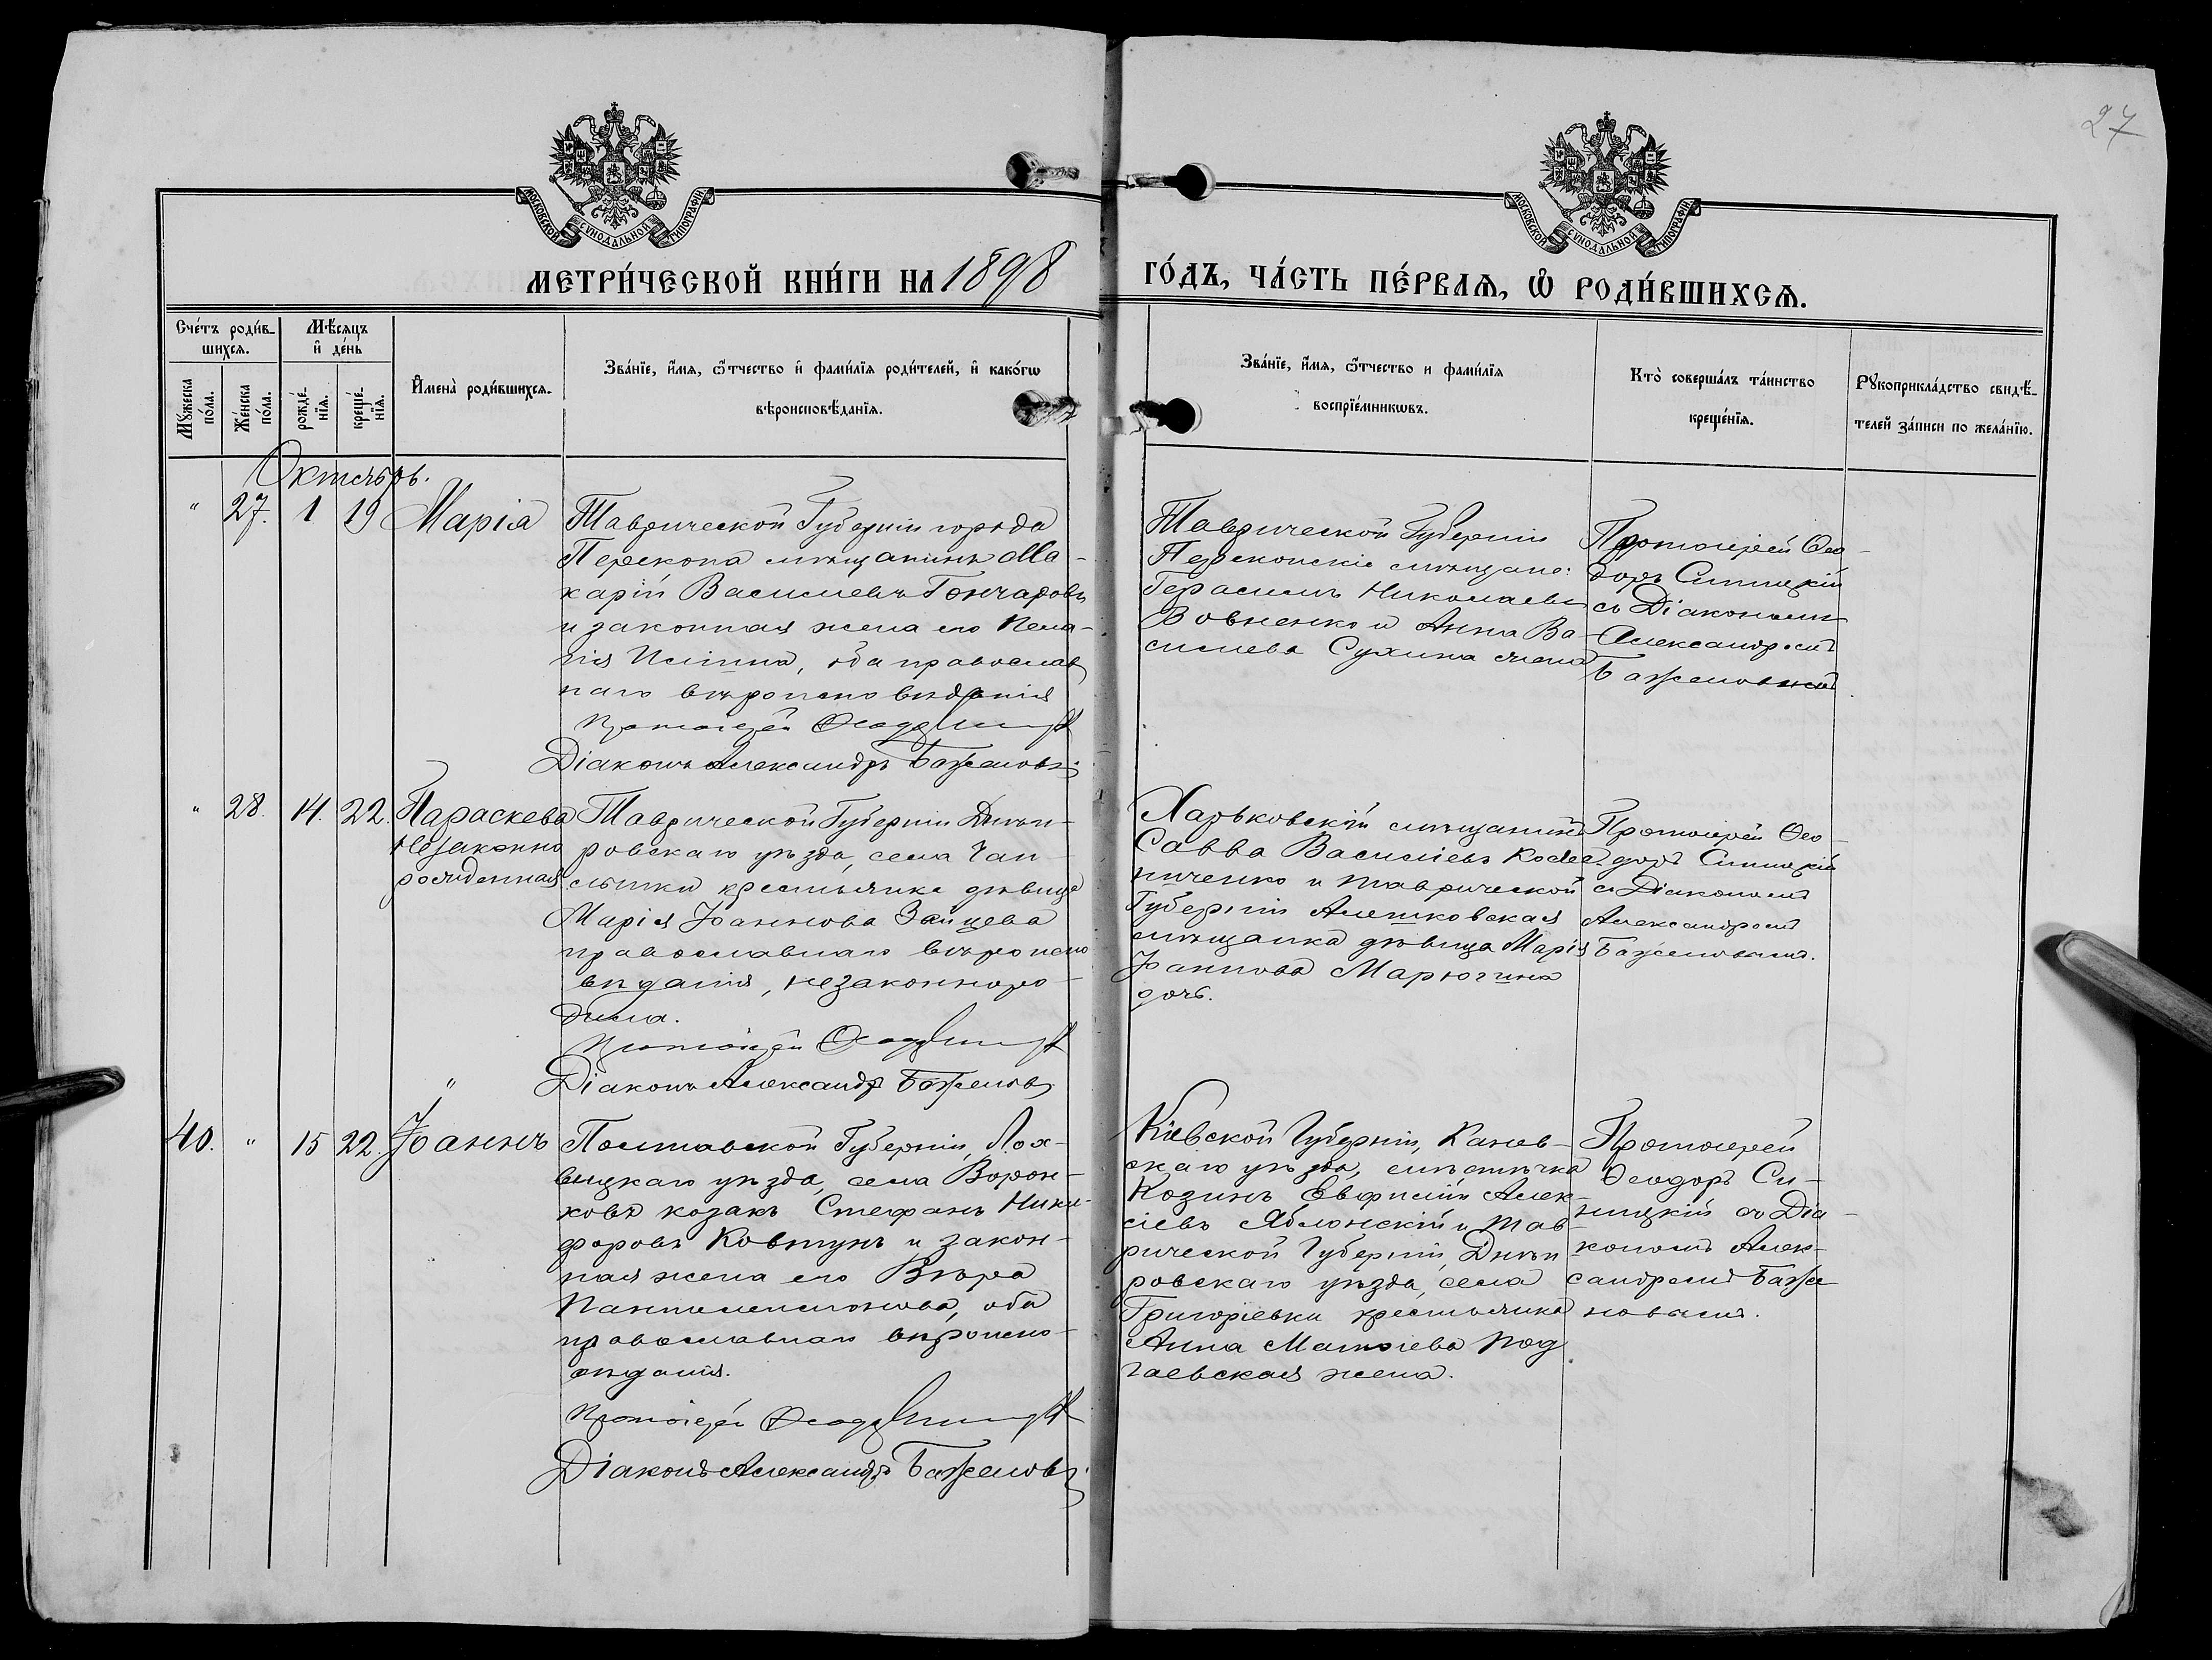 27
МОСКОВСКОЙ СУНОДАЛЬНОЙ ТИПОГРАФІИ
МОСКОВСКОЙ СУНОДАЛЬНОЙ ТИПОГРАФІИ
МЕТРИ́ЧЕСКОЙ КНИ́ГИ НА 1898
ГО́ДЪ, ЧА́СТЬ ПЕ́РВАѦ, Ѡ РОДИ́ВШИХСѦ.
Сче́тъ роди́в-
шихсѧ.
Мѣ́сѧцъ
и де́нь
Мꙋ́жеска
по́ла.
Же́нска
по́ла.
рожде́-
нїѧ.
креще́-
нїѧ.
И҆мена̀ роди́вшихсѧ.
Зва́нїе, и҆́мѧ, ѻ҆́тчество и҆ фами́лїѧ роди́телей, и҆ како́гѡ
вѣроисповѣ́данїѧ.
Зва́нїе, и҆́мѧ, ѻ҆́тчество и фами́лїѧ
воспрїе́мникѡвъ.
Кто̀ соверша́лъ та́инство
креще́нїѧ.
Рꙋкоприкла́дство свидѣ́-
телей за́писи по жела́нїю.
Октябрь.
" 27. 1 19 Марія
Таврической Губерніи города
Перекопа мѣщанинъ Ма-
карій Васильевъ Гончаровъ
и законная жена его Пела-
гія Ильина, оба православ
наго вѣроисповѣданія
Протоіерей
Діаконъ Александръ Баженовъ
Таврической Губерніи
Перекопскіе мѣщане:
Герасимъ Николаевъ
Вовненко и Анна Ва-
сильева Сухина жена
Протоіерей Ѳео-
доръ Синицкій
съ Діакономъ
Александромъ
Баженовымъ
" 28. 14. 22. Параскева
Незаконно
рожденная
Таврической Губерніи Днѣп-
ровскаго уѣзда, села Чап-
лынки крестьянка дѣвица
Марія Іоаннова Зайцева
православнаго вѣроиспо
вѣданія, незаконноро-
дила.
Протоіерей
Діаконъ Александръ Баженовъ
Харьковскій мѣщанинъ
Савва Васильевъ
ниченко и Таврической
Губерніи Алешковская
мѣщанка дѣвица Марія
Іоаннова Марюгина
дочь.
Протоіерей Ѳео-
доръ Синицкій
съ Діакономъ
Александромъ
Баженовымъ.
40. " 15 22. Іоаннъ
Полтавской Губерніи, Лох-
вицкаго уѣзда, села Ворон-
ковъ козакъ Стефанъ Ники-
форовъ Ковтунъ и закон-
ная жена его Вѣра
Пантелеимонова, оба
православнаго вѣроиспо-
вѣданія.
Протоіерей
Діаконъ Александръ Баженовъ
Кіевской Губерніи, Канев-
скаго уѣзда, мѣстечка
Козинъ, Евфимій Алек-
сіевъ Яблонскій и Тав-
рической Губерніи, Днѣп
ровскаго уѣзда, села
Григоріевки крестьянка
Анна Матвіева Под
гаевская жена.
Протоіерей
Ѳеодоръ Си-
ницкій съ Діа-
кономъ Алек-
сандромъ Баже
новымъ.